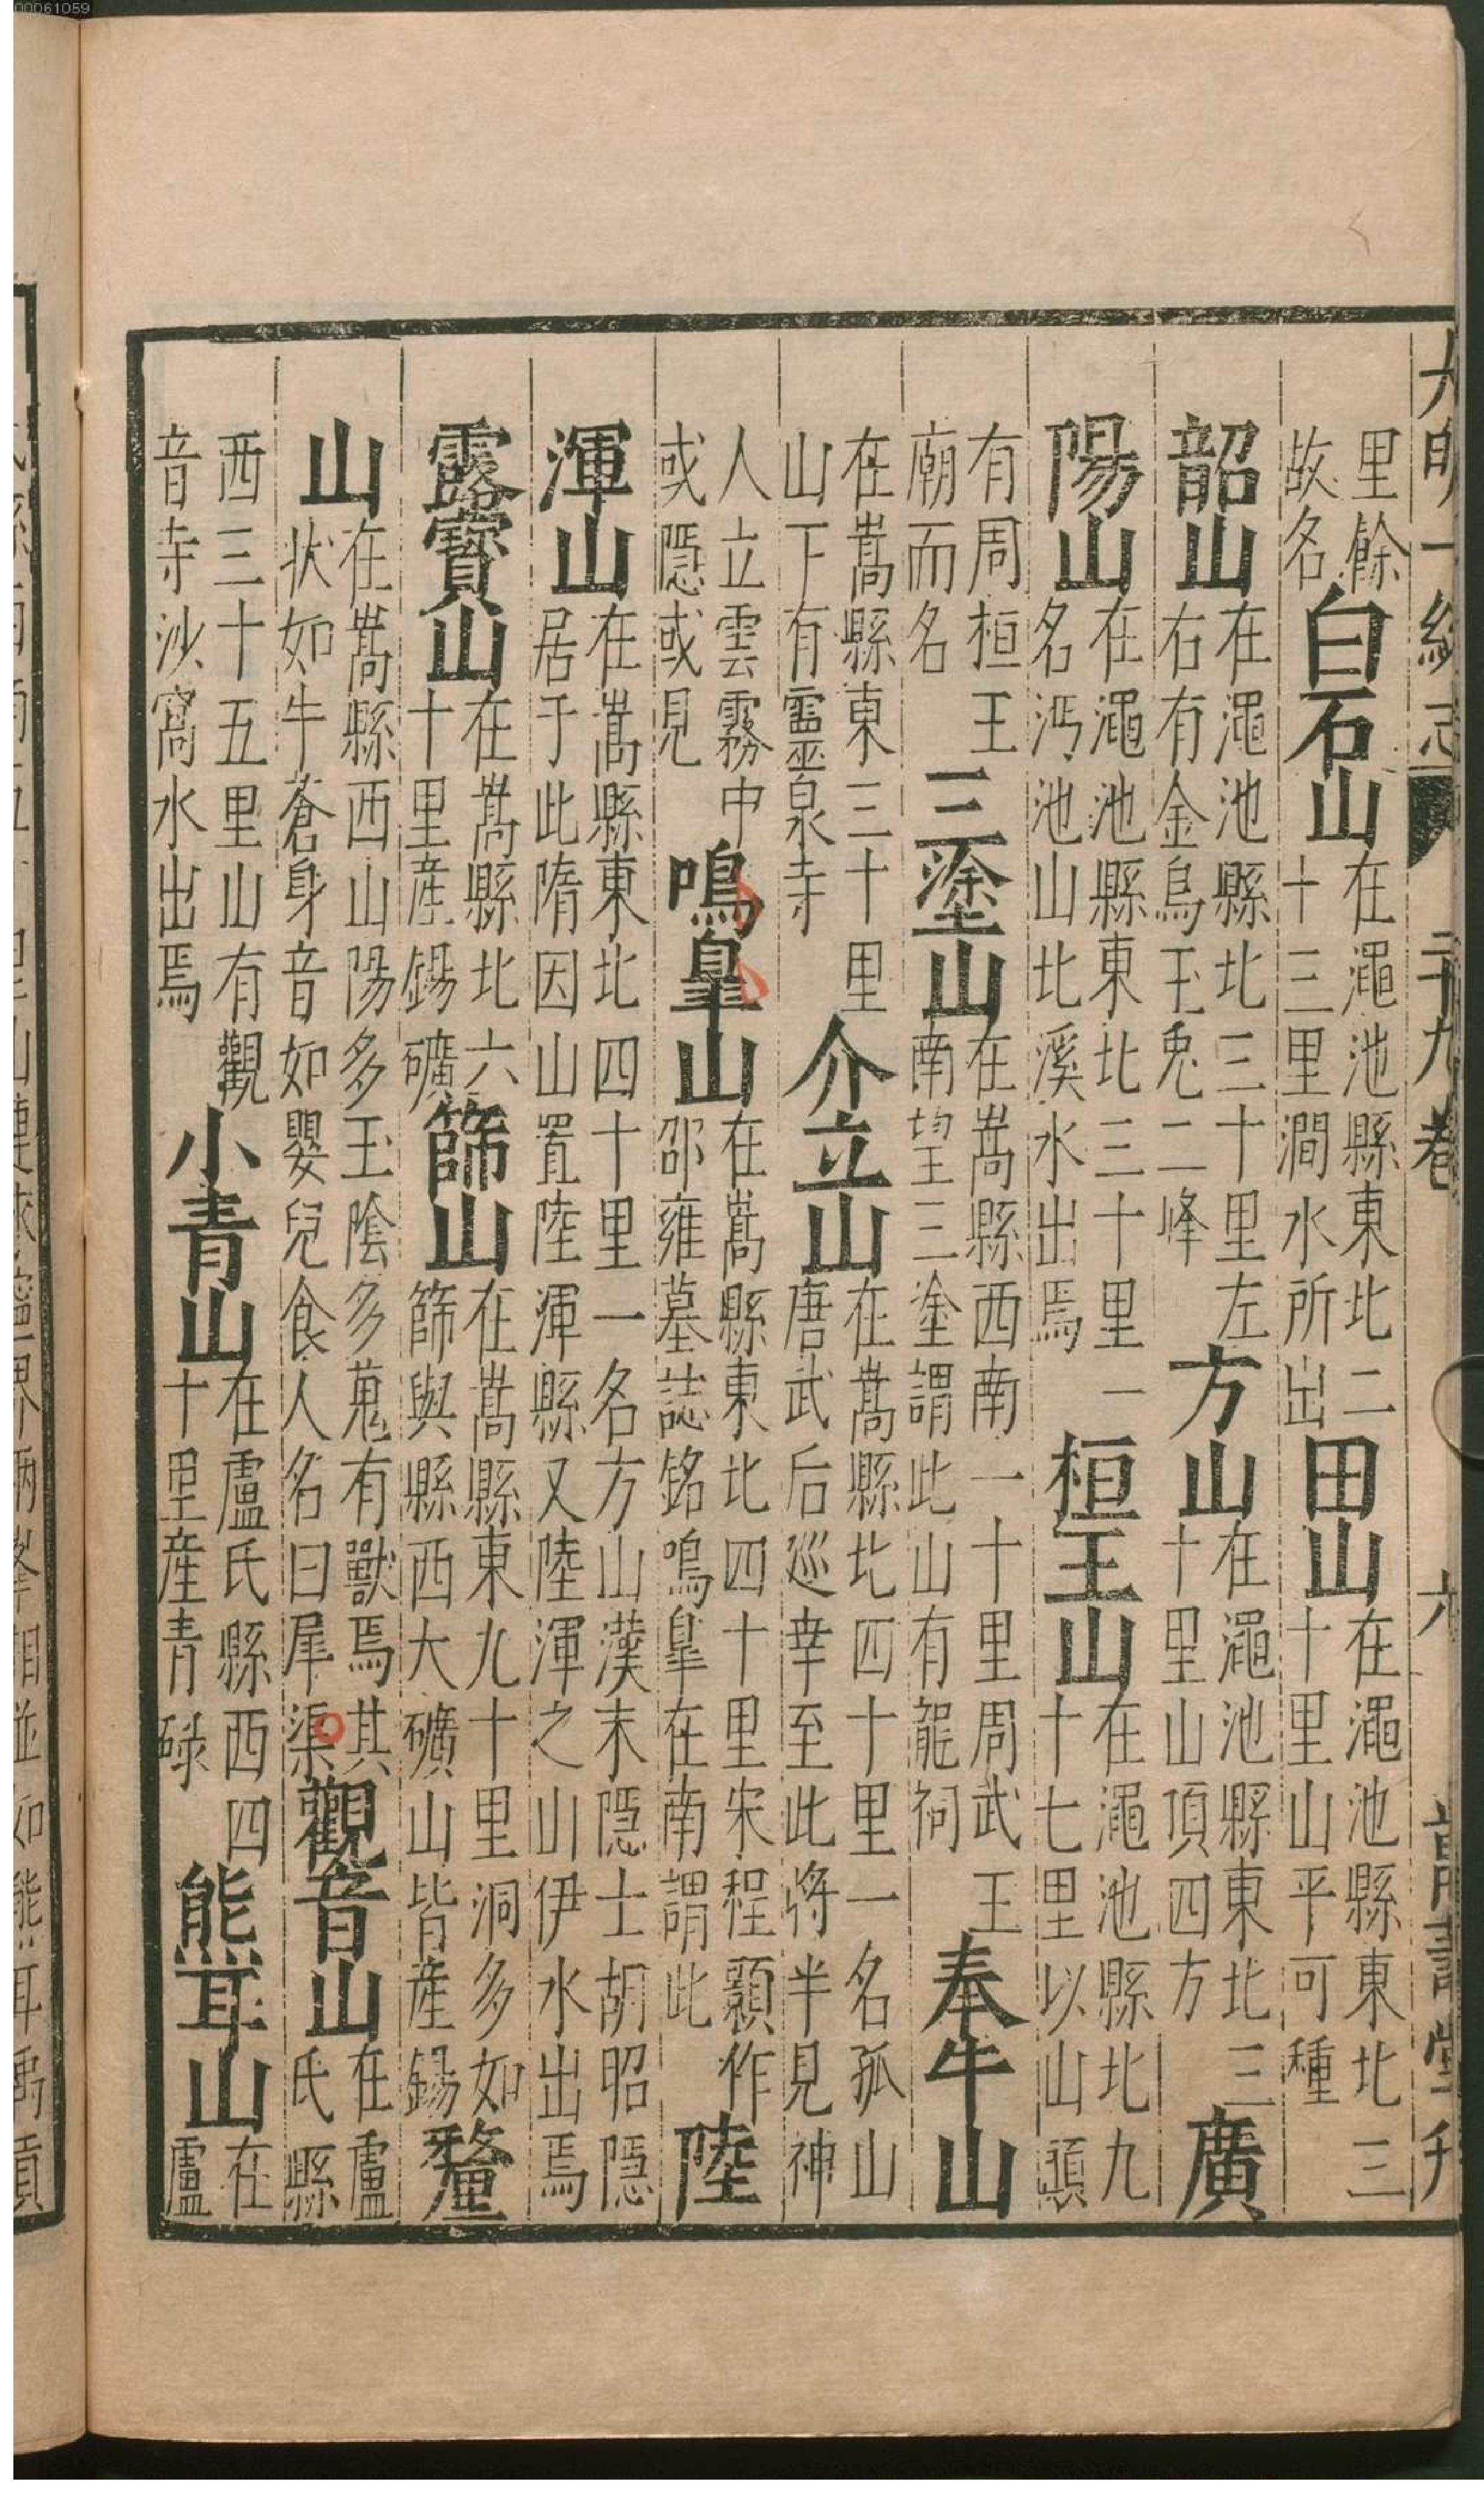 00061059
大明一統志 二十九卷 六 萬壽堂刊
里餘故名白石山在澠池縣東北二十三里澗水所出田山在澠池縣東北三十里山平可種
韶山在澠池縣北三十里左右有金烏玉兔二峰方山在澠池縣東北三十里山頂四方廣
陽山在澠池縣東北三十里一名沔池山北溪水出焉桓王山在澠池縣北九十七里以山頭
有周桓王廟而名三塗山在嵩縣西南一十里周武王南望三塗謂此山有龍祠奉牛山
在嵩縣東三十里山下有靈泉寺介立山在嵩縣北四十里一名孤山唐武后巡幸至此將半見神
人立雲霧中或隱或見鳴臯山在嵩縣東北四十里宋程顥作邵雍墓誌銘鳴臯在南謂此陸
渾山在嵩縣東北四十里一名方山漢末隱士胡昭隱居于此隋因山置陸渾縣又陸渾之山伊水出焉
露寶山在嵩縣北六十里産錫礦篩山在嵩縣東九十里洞多如篩與縣西大礦山皆産錫釐
山在嵩縣西山陽多玉陰多蒐有獸焉其状如牛蒼身音如嬰兒食人名曰犀渠觀音山在盧氏縣
西三十五里山有觀音寺沙窩水出焉小青山在盧氏縣西四十里産青碌熊耳山在盧